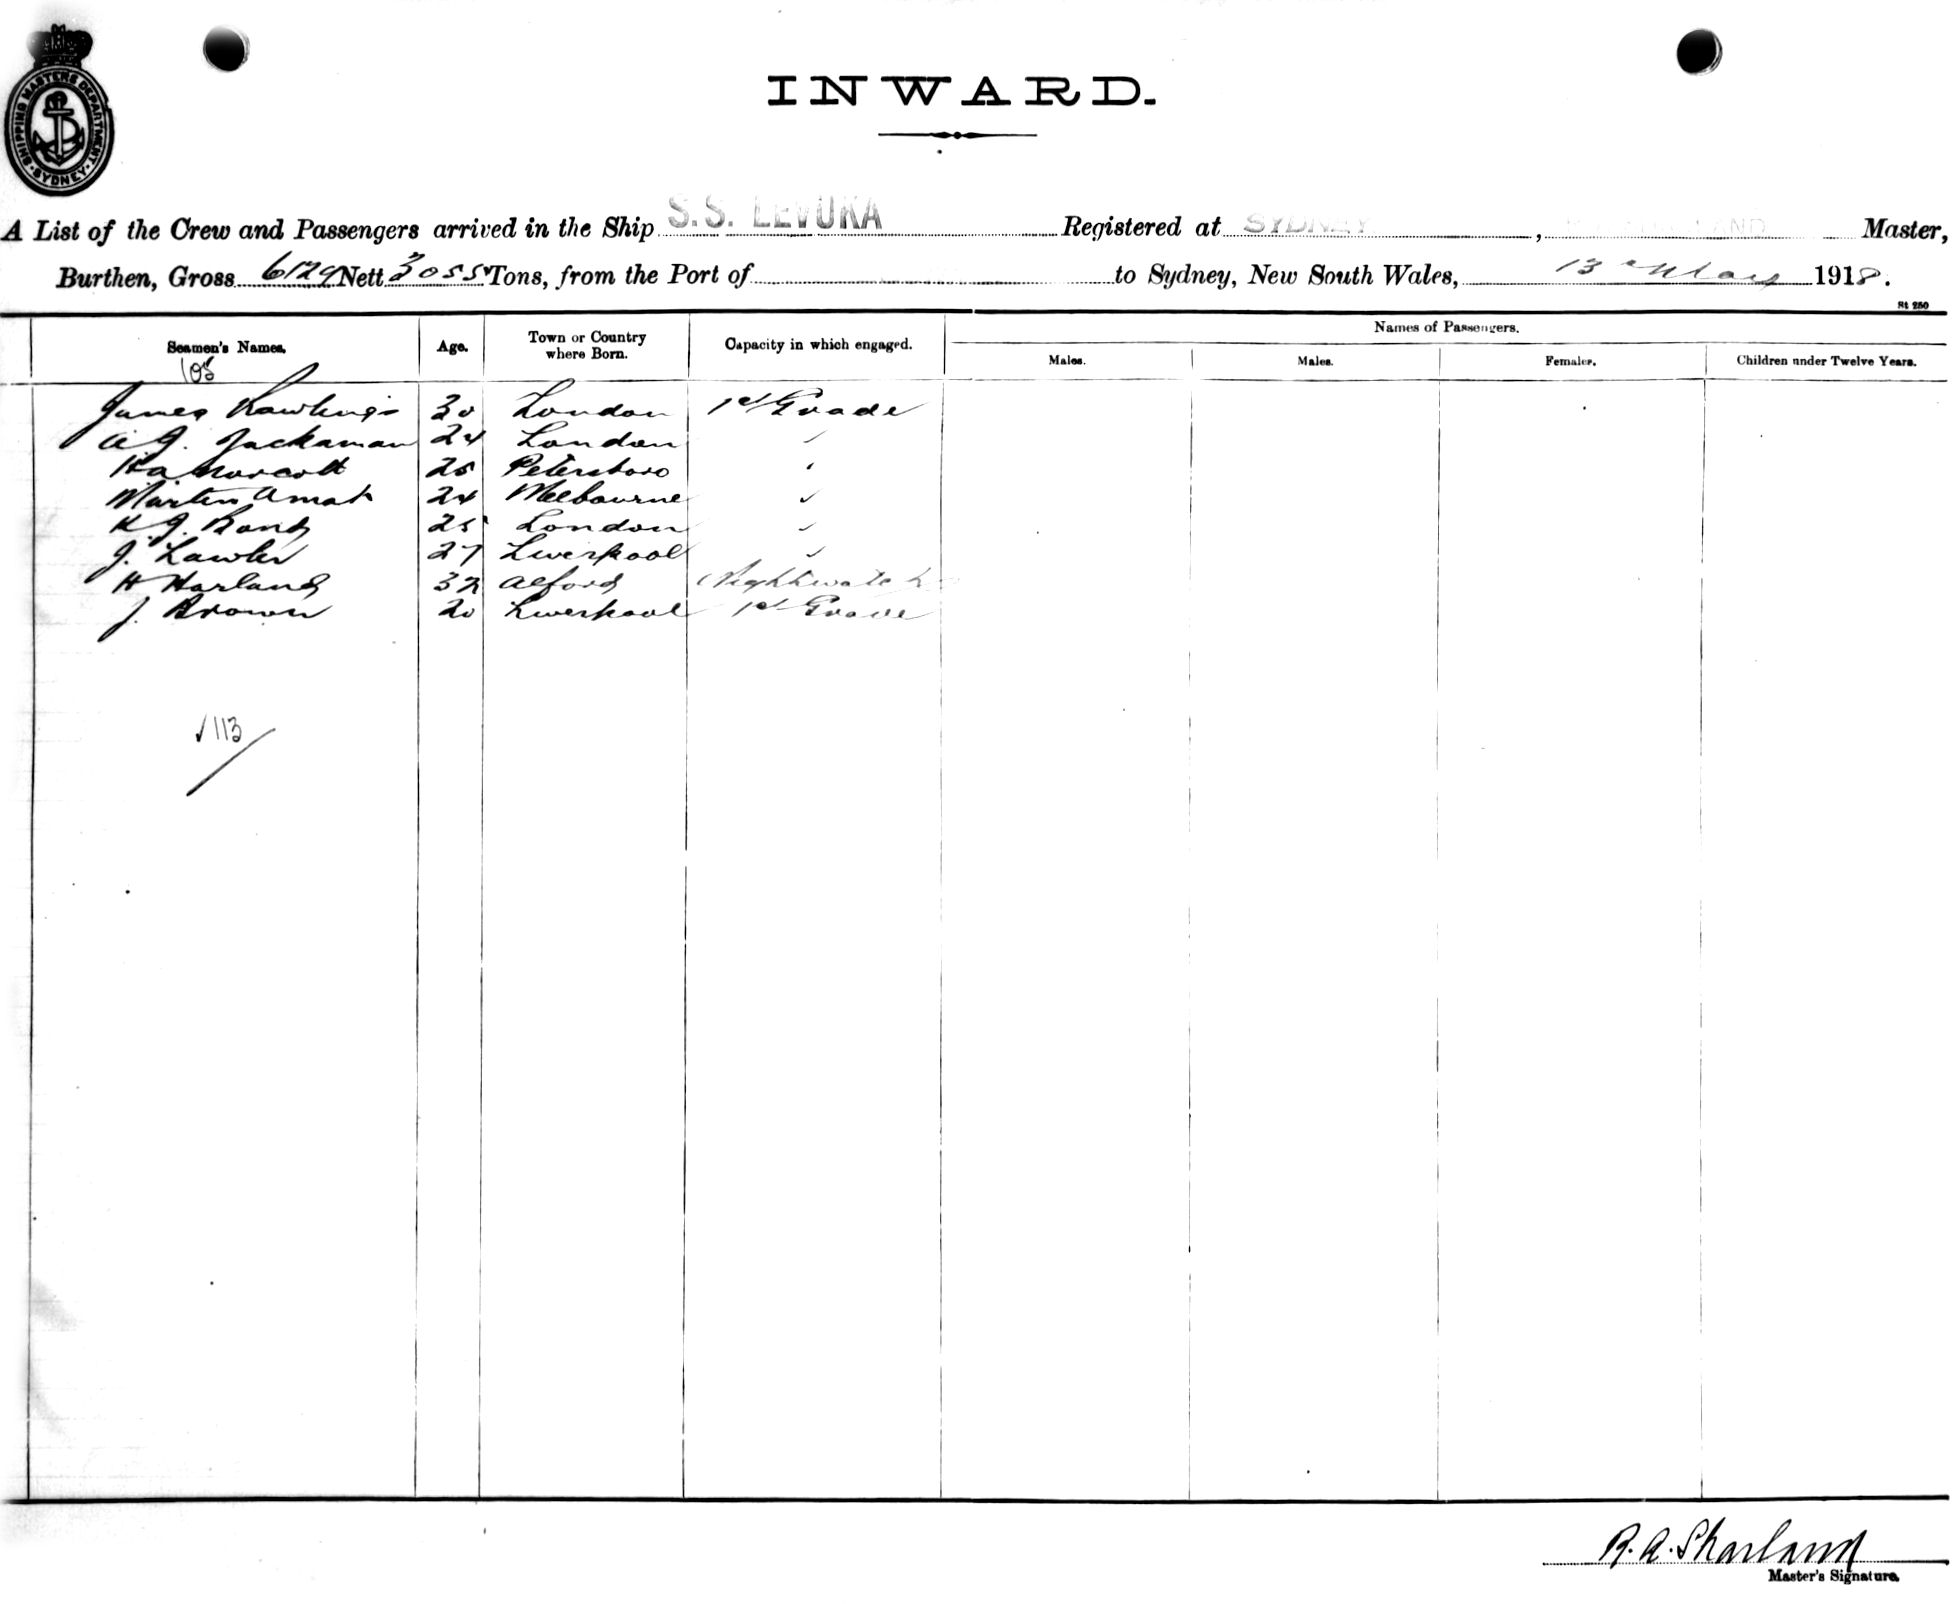 SHIPPING MASTERS DEPARTMENT SYDNEY
INWARD.
A List of the Crew and Passengers arrived in the Ship S.S. LEVUKA Registered at SYDNEY, Master,
Burthen, Gross 6129 Nett 3055 Tons, from the Port of to Sydney, New South Wales, 13 May 1918.
St 250
Seamen's Names. Age. Town or Country where Born. Capacity in which engaged. Names of Passengers.
Males. Males. Females. Children under Twelve Years.
105
James Rawlings 30 London 1st Grade
A J. Jackaman 24 London "
25 Petersboro "
Martin 24 Melbourne "
H. J. Bond 25 London "
J. Lawler 27 Liverpool "
H Harland 32 Alford Nightwatch
J. Brown 20 Liverpool 1st Grade
√ 113
R. A. Sharland
Master's Signature.